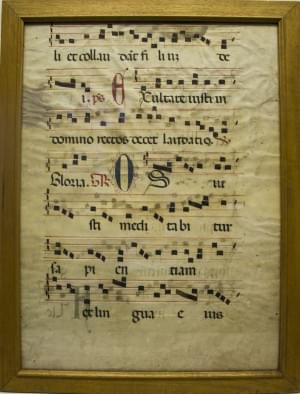 li et collau dāt fi liuz de
i. ps E xultate iusti in
domino rectos decet laudatio.
Gloria. Gr O S iu
sti medi tabi tur
sapi en tiam
et lin gua e ius